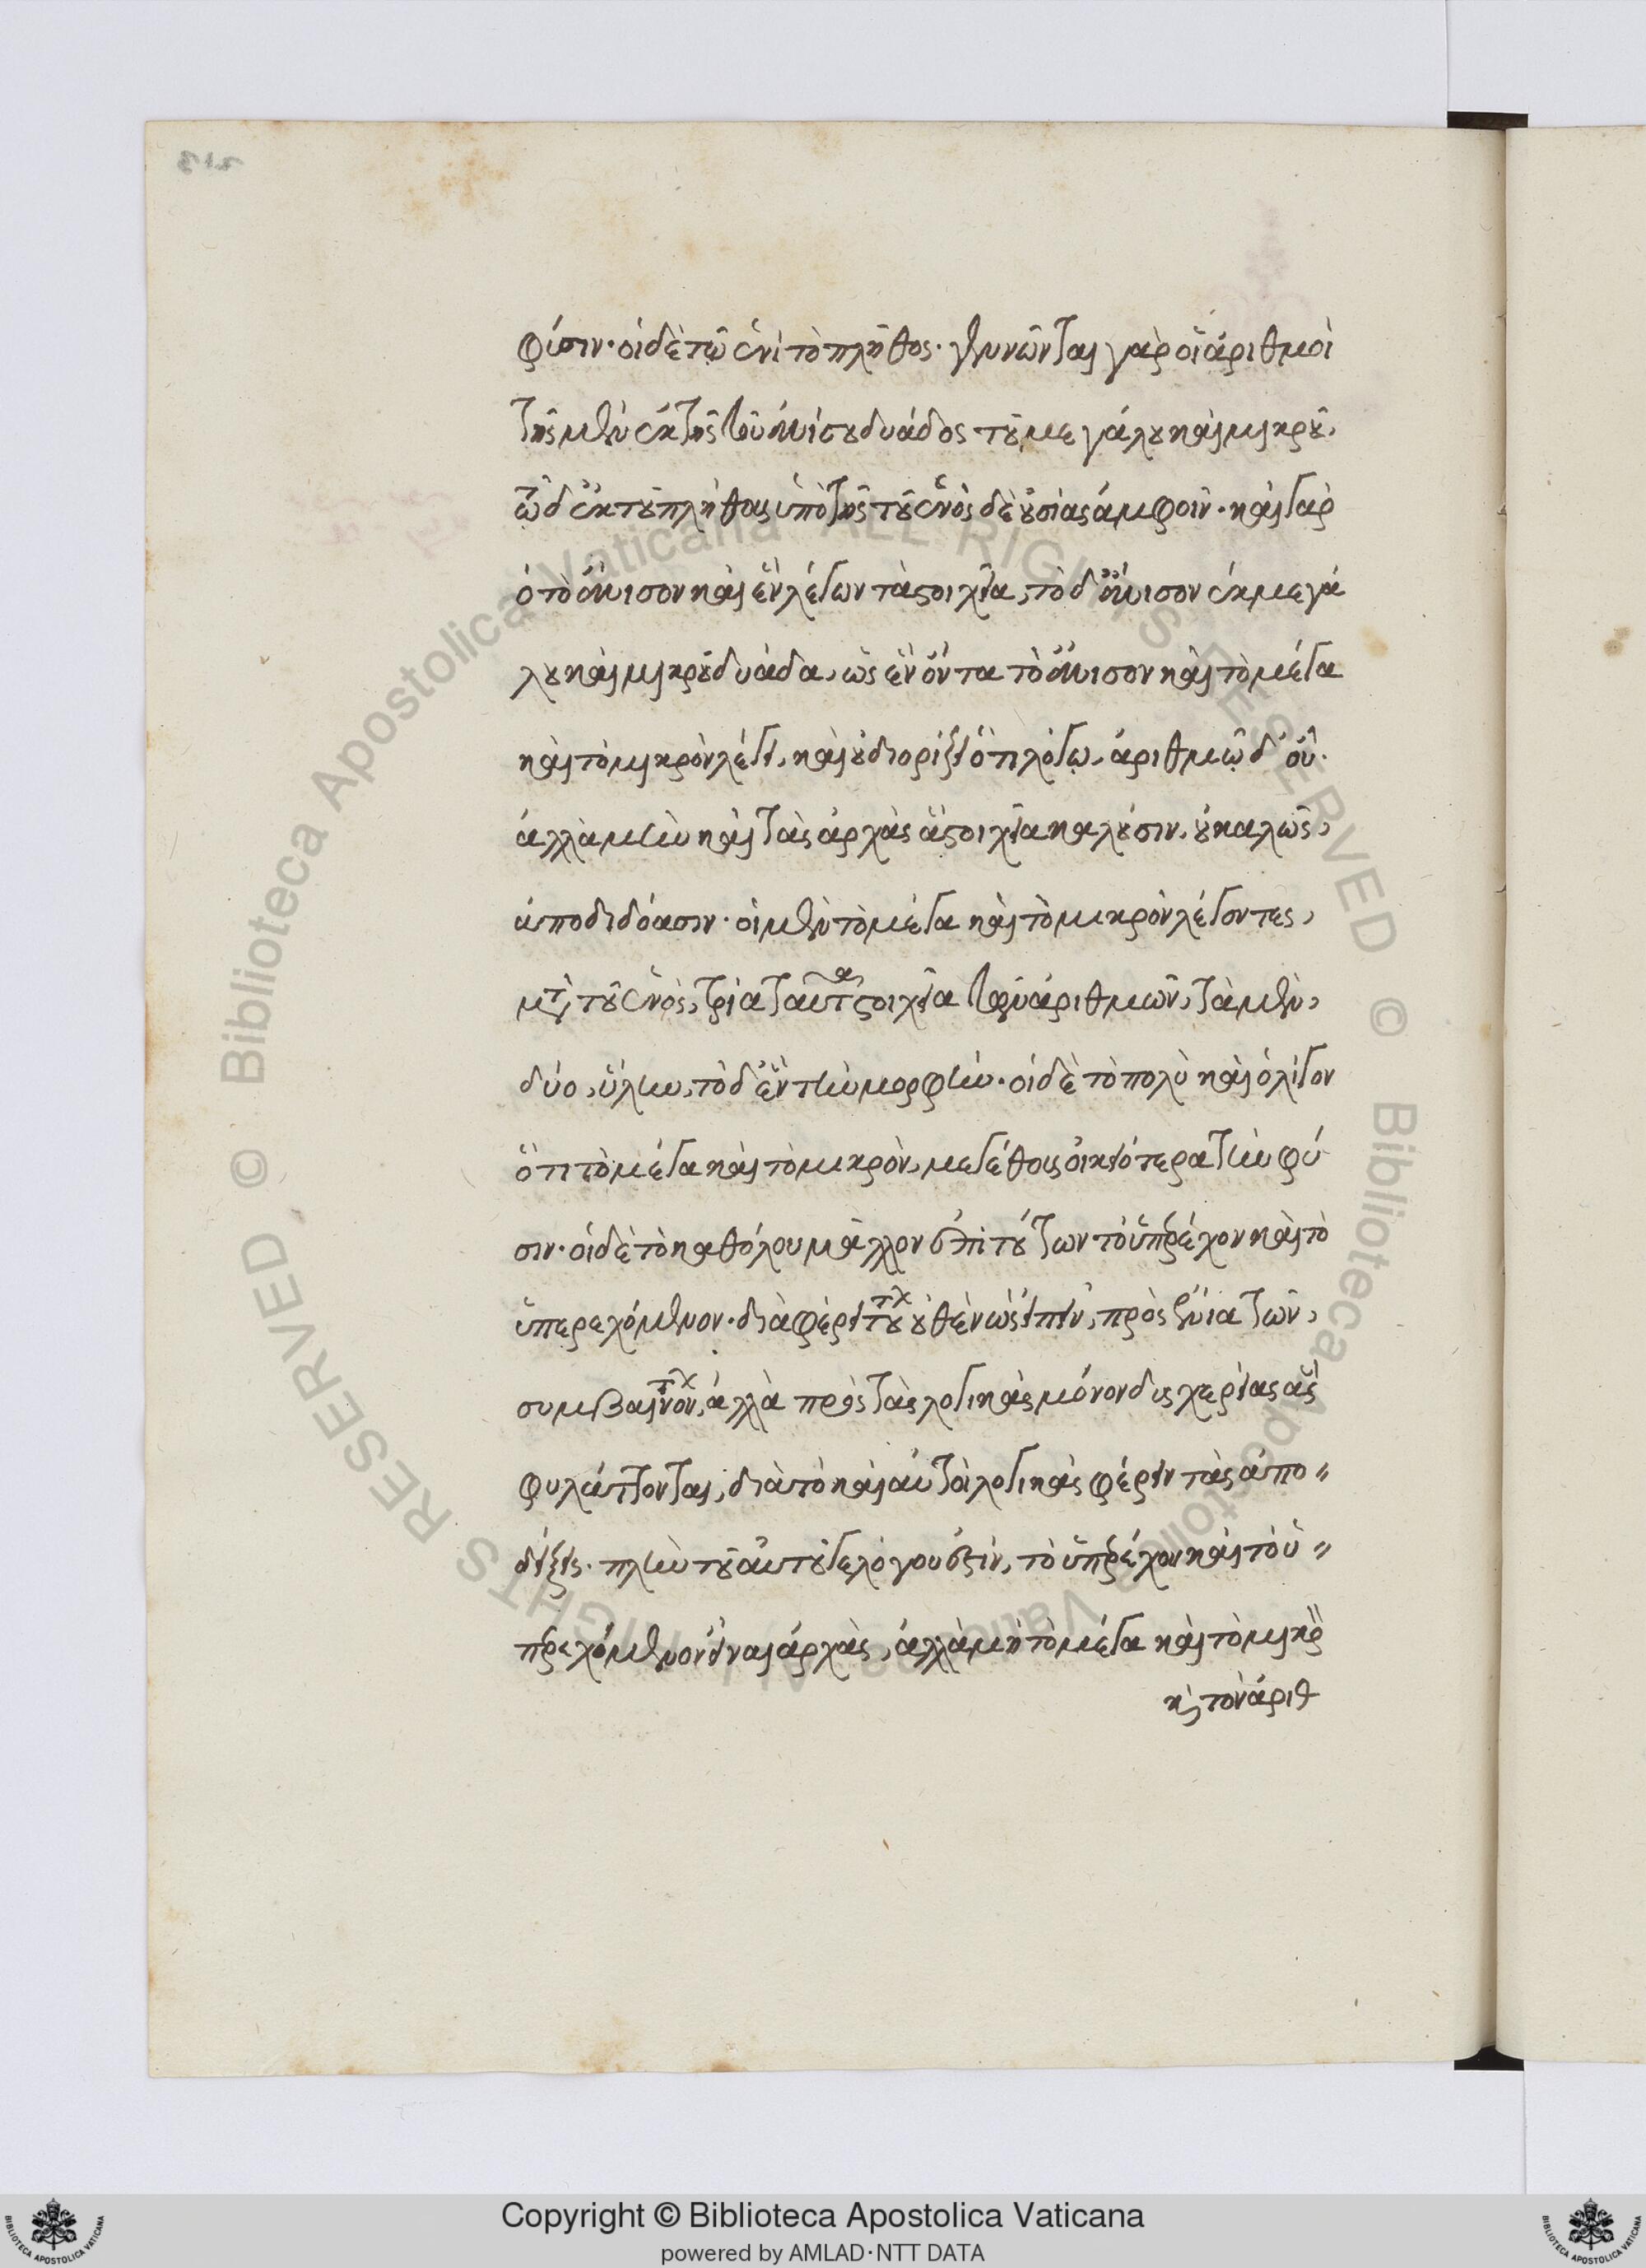 φύσιν· οἱ δὲ τῷ ἑνὶ τὸ πλῆθος· γεννῶνται γὰρ οἱ ἀριθμοὶ
τῆς μὲν ἐκ τῆς τοῦ ἀνίσου δυάδος τοῦ μεγάλου καὶ μικροῦ,
τῷ δ' ἐκ τοῦ πλήθους ὑπὸ τῆς τοῦ ἑνὸς δὲ οὐσίας ἀμφοῖν· καὶ γὰρ
ὁ τὸ ἄνισον καὶ ἓν λέγων τὰ στοιχεῖα, τὸ δ' ἄνισον ἐκ μεγά
λου καὶ μικροῦ δυάδα, ὡς ἓν ὄντα τὸ ἄνισον καὶ τὸ μέγα
καὶ τὸ μικρὸν λέγει, καὶ οὐ διορίζει ὅτι λόγῳ, ἀριθμῷ δ' οὔ·
ἀλλὰ μὴν καὶ τὰς ἀρχὰς ἃς στοιχεῖα καλοῦσιν, οὐ καλῶς,
ἀποδιδόασιν· οἱ μὲν τὸ μέγα καὶ τὸ μικρὸν λέγοντες,
μετὰ τοῦ ἑνὸς, τρία ταῦτα στοιχεῖα τῶν ἀριθμῶν, τὰ μὲν,
δύο, ὕλην, τὸ δ' ἓν τὴν μορφήν· οἱ δὲ τὸ πολὺ καὶ ὀλίγον
ὅτι τὸ μέγα καὶ τὸ μικρὸν, μεγέθους οἰκειότερα τὴν φύ
σιν· οἱ δὲ τὸ καθόλου μᾶλλον ἐπὶ τούτων τὸ ὑπερέχον καὶ τὸ
ὑπερεχόμενον· διαφέρει τούτων οὐθὲν ὡς εἰπεῖν, πρὸς ἔνια τῶν,
συμβαινόντων, ἀλλὰ πρὸς τὰς λογικὰς μόνον δυσχερείας ἃς
φυλάττονται, διὰ τὸ καὶ αὐτοὶ λογικὰς φέρειν τὰς ἀπο〃
δείξεις· πλὴν τοῦ αὐτοῦ γε λόγου ἐστὶν, τὸ ὑπερέχον καὶ τὸ ὑ〃
περεχόμενον εἶναι ἀρχὰς, ἀλλὰ μὴ τὸ μέγα καὶ τὸ μικρ
κ, τὸν ἀριθ
Copyright © Biblioteca Apostolica Vaticana
powered by AMLAD·NTT DATA